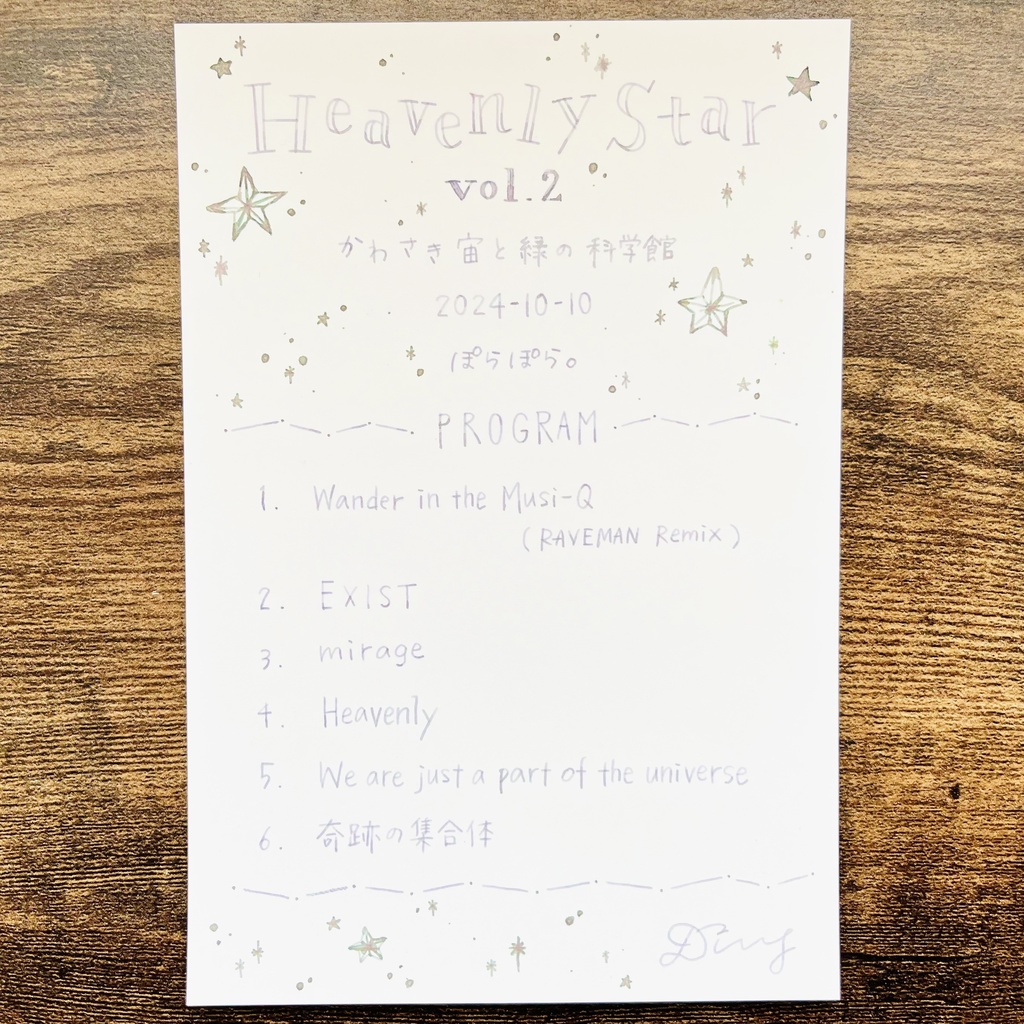 Heavenly Star
vol.2
かわさき宙と緑の科学館
2024-10-10
ぽらぽら。
PROGRAM
1. Wander in the Musi-Q
(RAVEMAN Remix)
2. EXIST
3. mirage
4. Heavenly
5. We are just a part of the universe
6. 奇跡の集合体